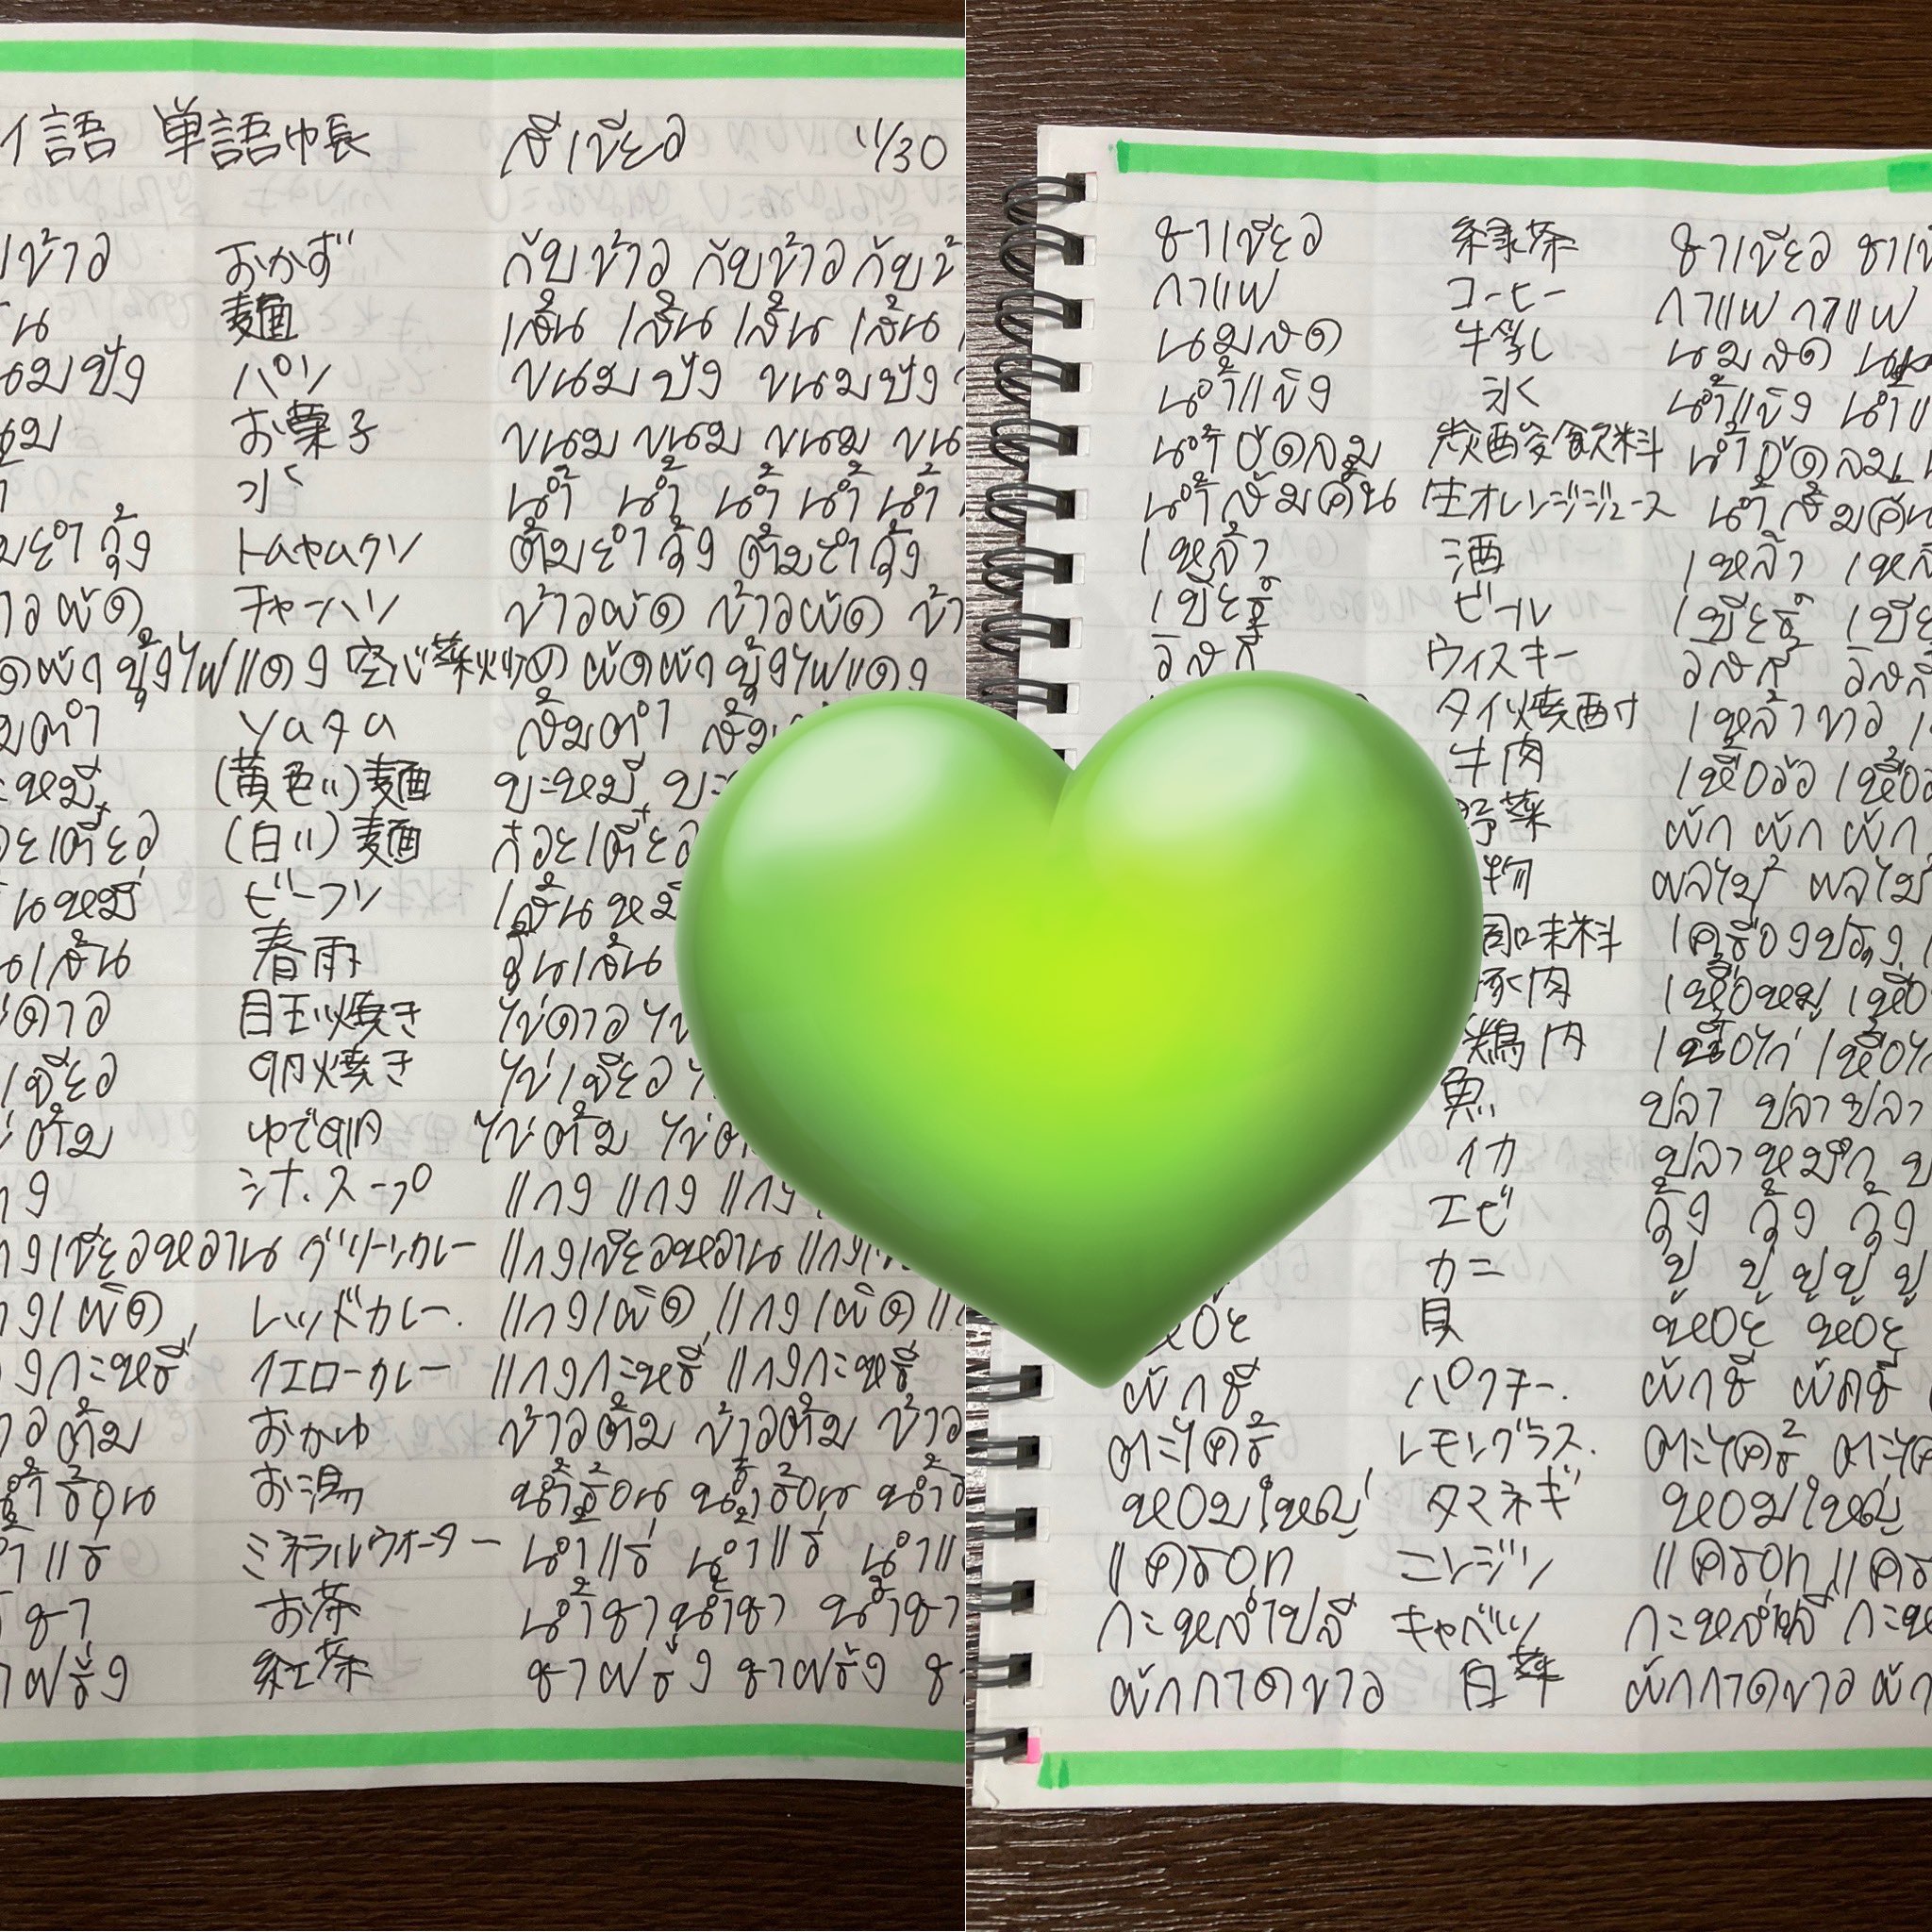 イ語 単語帳 สีเขียว 11/30
ข้าว おかず กับข้าว กับข้าว กับข้
น 麺 เส้น เส้น เส้น เส้น
นมปัง パン ขนมปัง ขนมปัง
นม お菓子 ขนม ขนม ขนม ขน
水 น้ำ น้ำ น้ำ น้ำ น้ำ
มยำกุ้ง トムヤムクン ต้มยำกุ้ง ต้มยำกุ้ง
าวผัด チャーハン ข้าวผัด ข้าวผัด ข้า
ดผักบุ้งไฟแดง 空心菜炒め ผัดผักบุ้งไฟแดง
มตำ ソムタム ส้มตำ ส้ม
ะหมี่ (黄色い)麺 บะหมี่ บะ
วยเตี๋ยว (白い)麺 ก๋วยเตี๋ยว
นหมี่ ビーフン เส้นหมี่
นเส้น 春雨 วุ้นเส้น
่ดาว 目玉焼き ไข่ดาว ไข่
เจียว 卵焼き ไข่เจียว
่ต้ม ゆで卵 ไข่ต้ม ไข่ต
กง シナ.スープ แกง แกง แกง
กงเขียวหวาน グリーンカレー แกงเขียวหวาน แกง
กงเผ็ด レッドカレー. แกงเผ็ด แกงเผ็ด แ
งกะหรี่ イエローカレー แกงกะหรี่ แกงกะหรี่
าวต้ม おかゆ ข้าวต้ม ข้าวต้ม ข้าว
น้ำร้อน お湯 น้ำร้อน น้ำร้อน น้ำร้
ำแร่ ミネラルウオーター น้ำแร่ น้ำแร่ น้ำแ
ชา お茶 น้ำชา น้ำชา น้ำชา
าฝรั่ง 紅茶 ชาฝรั่ง ชาฝรั่ง ช
ชาเขียว 緑茶 ชาเขียว ชาเขี
กาแฟ コーヒー กาแฟ กาแฟ
นมสด 牛乳 นมสด
น้ำแข็ง 氷 น้ำแข็ง น้ำแ
น้ำอัดลม 炭酸飲料 น้ำอัดลม
น้ำส้มคั้น 生オレンジジュース น้ำส้มคั้น
เหล้า 酒 เหล้า เหล้
เบียร์ ビール เบียร์ เบีย
วิสกี้ ウィスキー วิสกี้ วิสกี้
タイ焼酎 เหล้าขาว เ
牛肉 เนื้อวัว เนื้อว
野菜 ผัก ผัก ผัก
物 ผลไม้ ผลไม้
調味料 เครื่องปรุง
豚肉 เนื้อหมู เนื้อ
鶏肉 เนื้อไก่ เนื้อไก่
魚 ปลา ปลา ปลา
イカ ปลาหมึก ป
エビ กุ้ง กุ้ง กุ้ง
カニ ปู ปู ปู ปู ปู
หอย 貝 หอย หอย
ผักชี パクチー. ผักชี ผักชี
ตะไคร้ レモングラス. ตะไคร้ ตะไค
หอมใหญ่ タマネギ หอมใหญ่
แครอท ニンジン แครอท แคร
กะหล่ำปลี キャベツ กะหล่ำปลี กะห
ผักกาดขาว 白菜 ผักกาดขาว ผัก